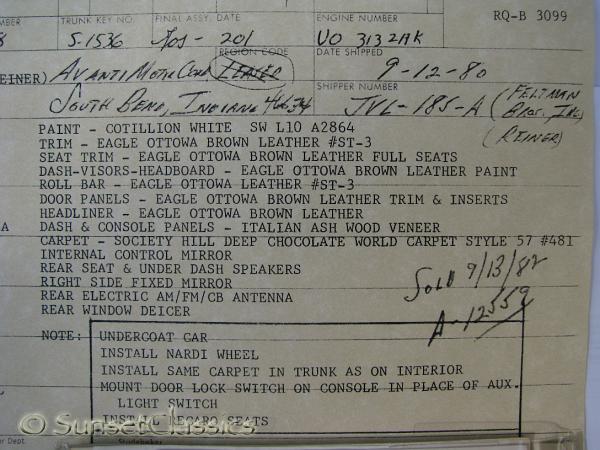 RQ-B 3099
NUMBER TRUNK KEY NO. FINAL ASSY. DATE ENGINE NUMBER
8 S-1536 205-201 VO 3132AK
REGION CODE DATE SHIPPED
REINER) AVANTI MOTOR CORP LEATER 9-12-80
SHIPPER NUMBER
SOUTH BEND, INDIANA JVL-185-A (FELTMAN
BROS. INC,
(REINER)
PAINT - COTILLION WHITE SW L10 A2864
TRIM - EAGLE OTTOWA BROWN LEATHER #ST-3
SEAT TRIM - EAGLE OTTOWA BROWN LEATHER FULL SEATS
DASH-VISORS-HEADBOARD - EAGLE OTTOWA BROWN LEATHER PAINT
ROLL BAR - EAGLE OTTOWA LEATHER #ST-3
DOOR PANELS - EAGLE OTTOWA BROWN LEATHER TRIM & INSERTS
HEADLINER - EAGLE OTTOWA BROWN LEATHER
A DASH & CONSOLE PANELS - ITALIAN ASH WOOD VENEER
CARPET - SOCIETY HILL DEEP CHOCOLATE WORLD CARPET STYLE 57 #481
INTERNAL CONTROL MIRROR
REAR SEAT & UNDER DASH SPEAKERS
RIGHT SIDE FIXED MIRROR
REAR ELECTRIC AM/FM/CB ANTENNA
REAR WINDOW DEICER
SOLD 9/13/82
A-12559
NOTE: UNDERCOAT CAR
INSTALL NARDI WHEEL
INSTALL SAME CARPET IN TRUNK AS ON INTERIOR
MOUNT DOOR LOCK SWITCH ON CONSOLE IN PLACE OF AUX.
LIGHT SWITCH
INSTALL RECARO SEATS
© SunsetClassics
r Dept. Studebaker